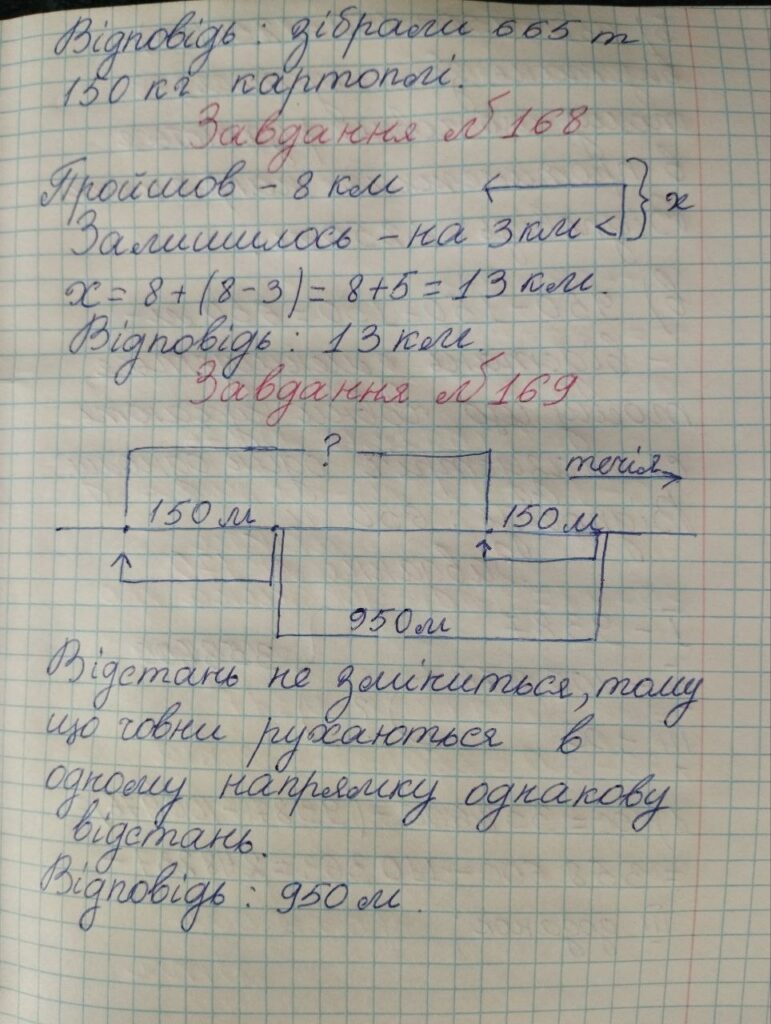 Відповідь: зібрали 665 т
150 кг картоплі.
Завдання № 168
Пройшов - 8 км
Залишилось - на 3 км < } х
х = 8 + (8 - 3) = 8 + 5 = 13 км.
Відповідь: 13 км.
Завдання № 169
?
течія
150 м 150 м
950 м
Відстань не зміниться, тому
що човни рухаються в
одному напрямку однакову
відстань.
Відповідь: 950 м.